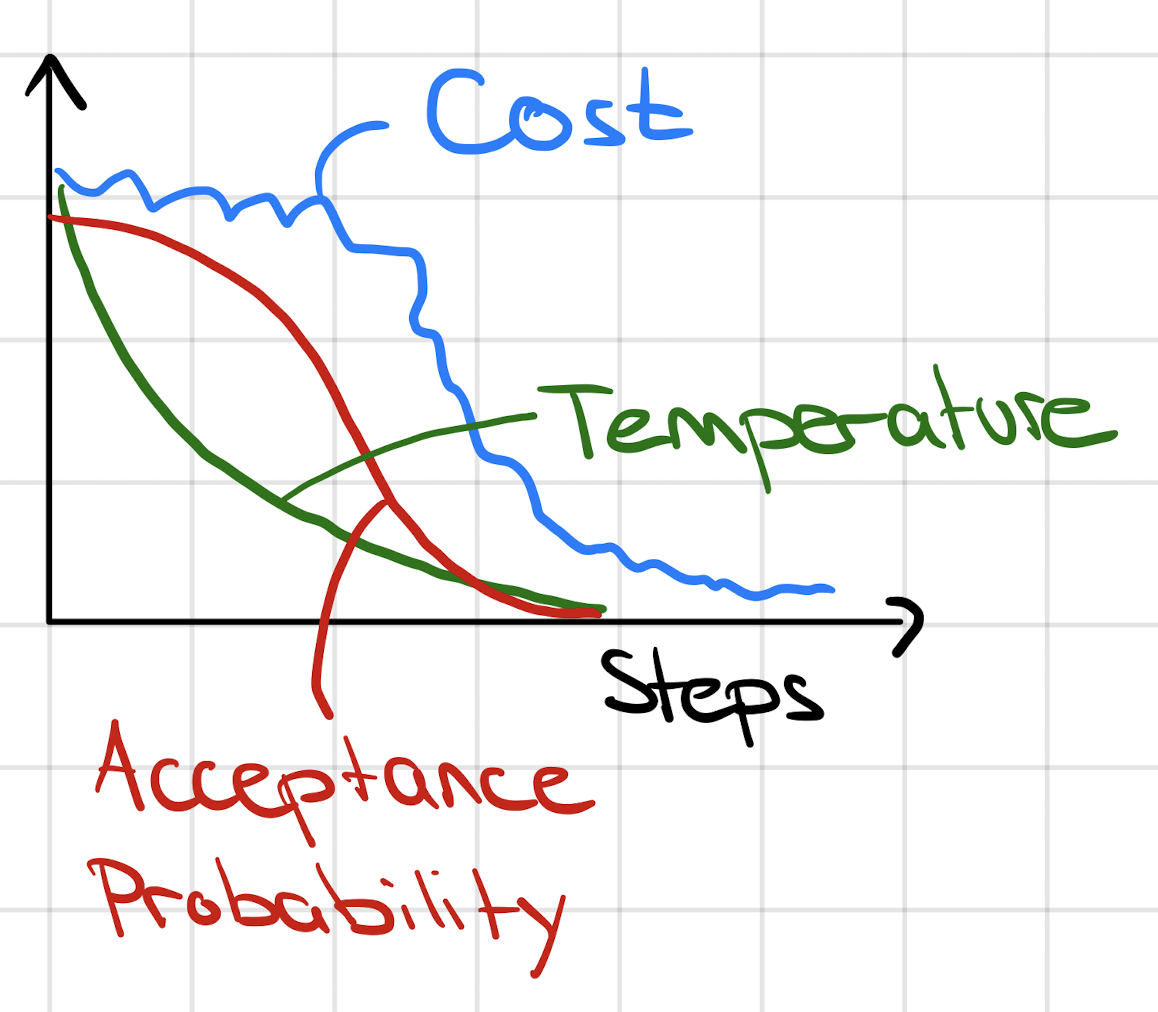 Cost
Temperature
Steps
Acceptance
Probability